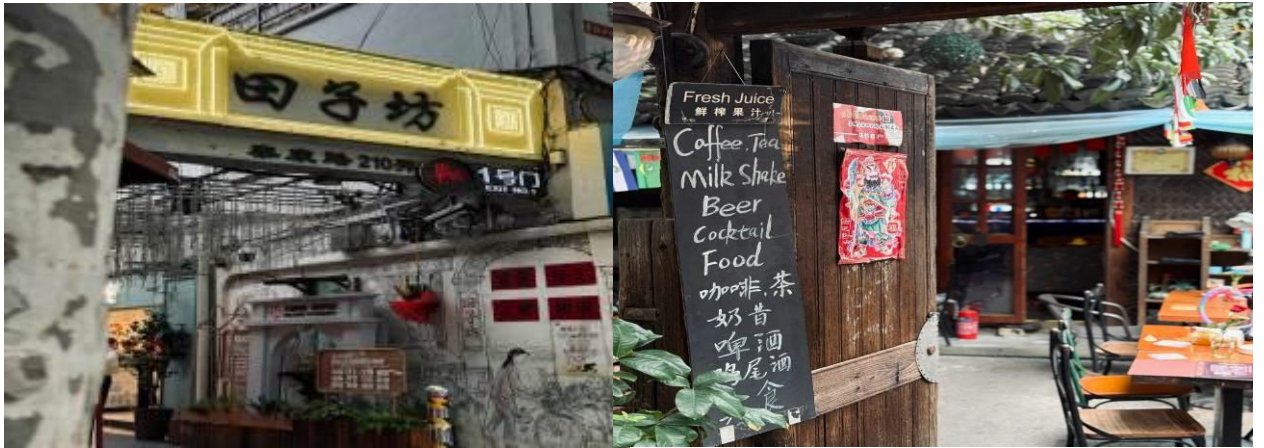 田子坊
泰康路210弄
1号门
Fresh Juice
鲜榨果汁
Coffee.Tea
Milk Shake
Beer
Cocktail
Food
咖啡.茶
奶昔
啤酒
鸡尾酒
食